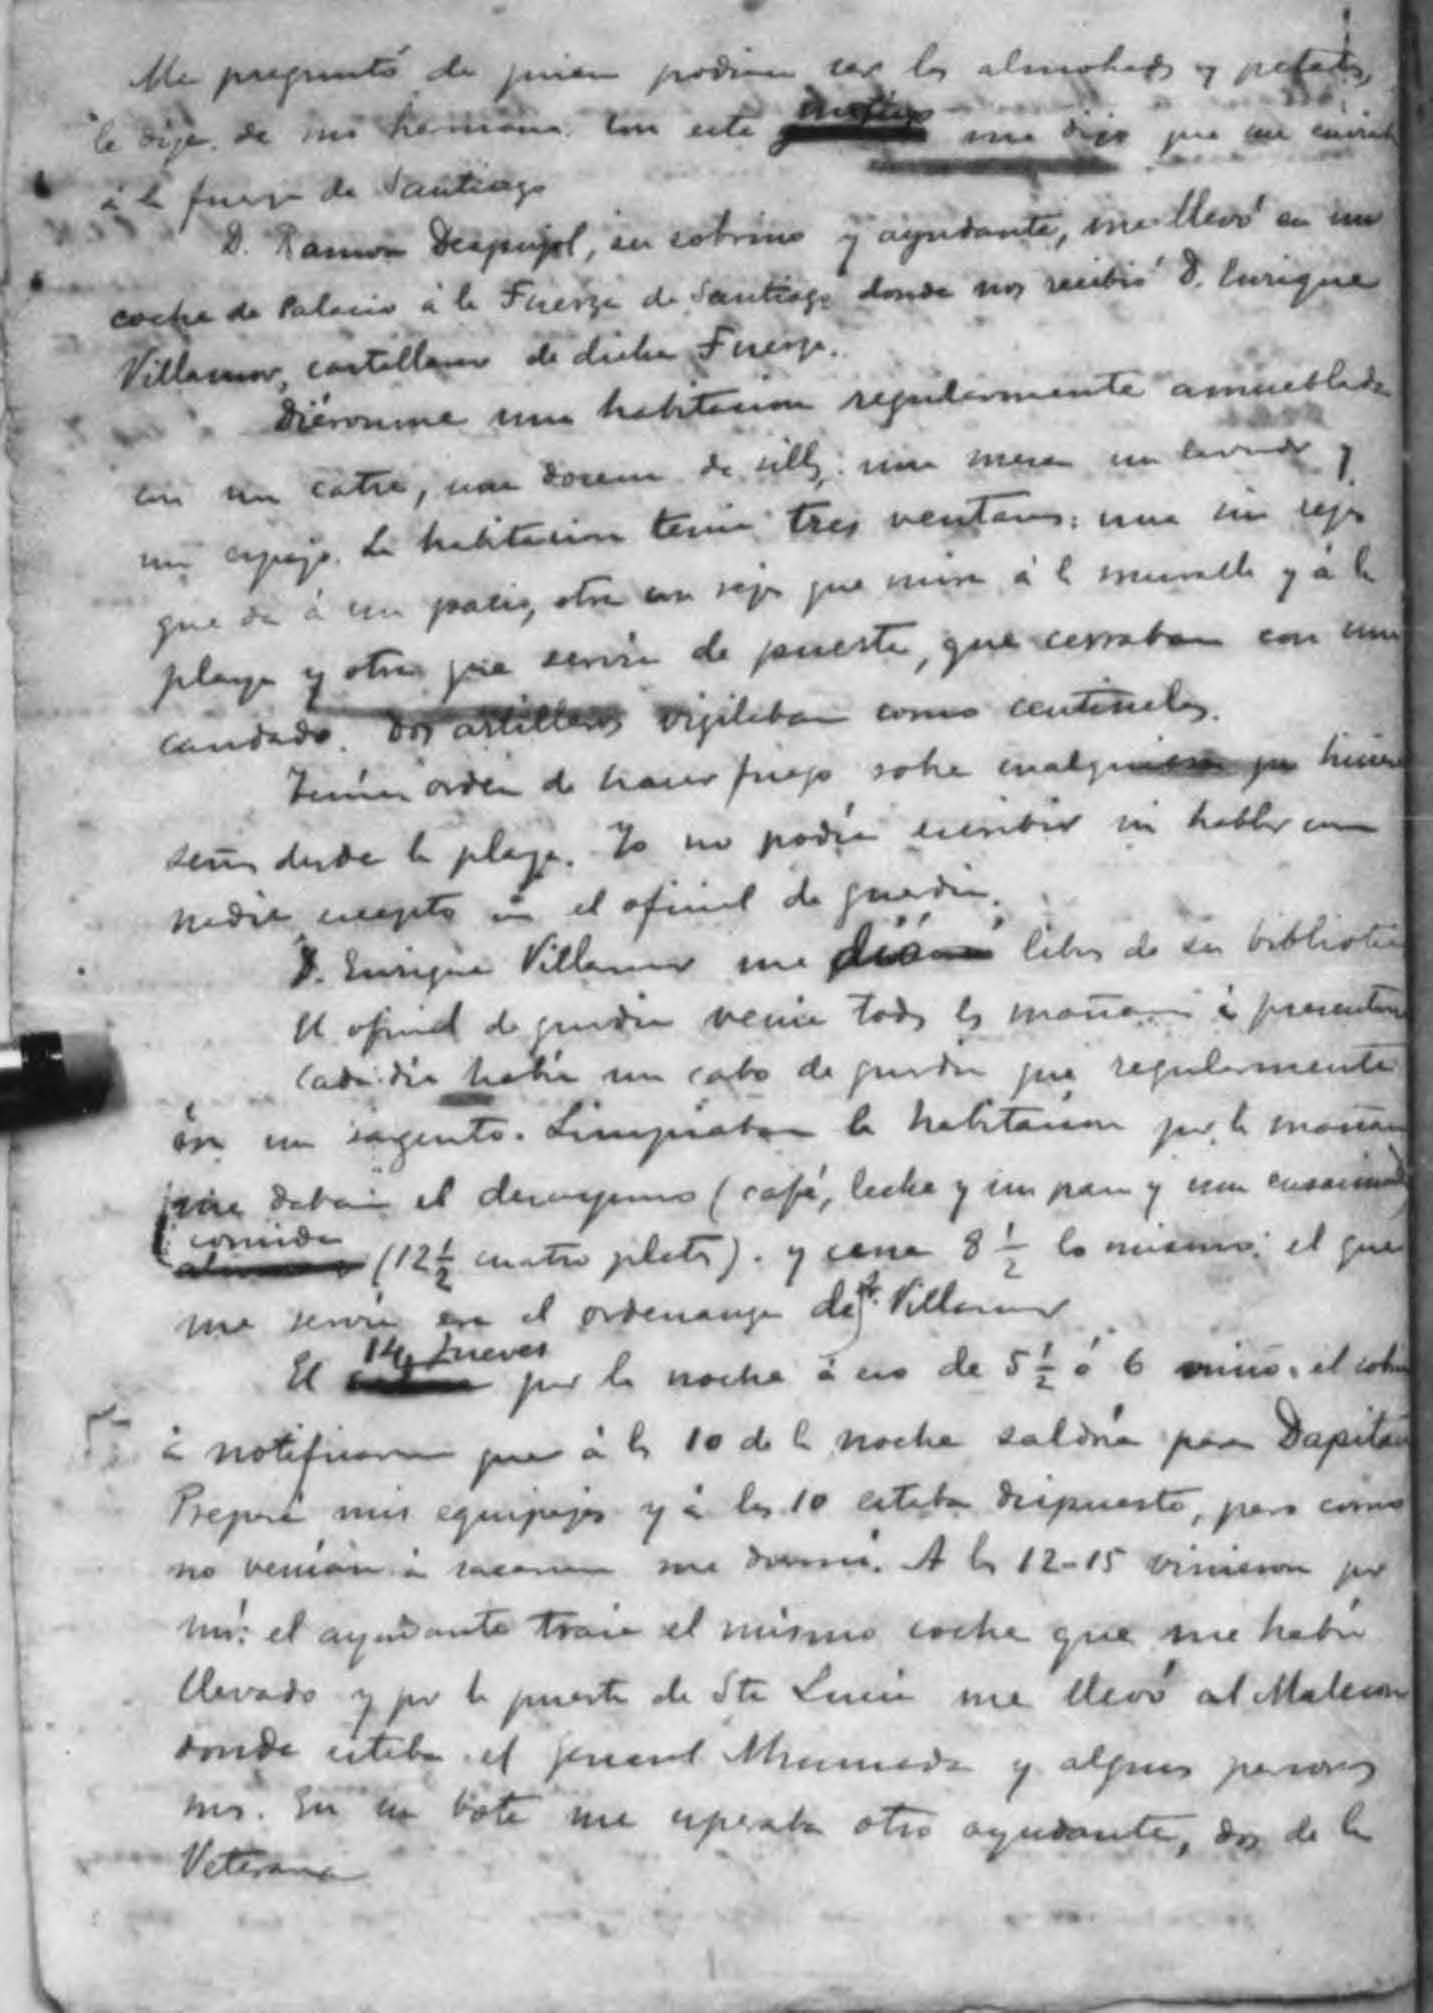 Me preguntó de quien podian ser las almohadas y petates,
le dije de mi hermana. Con este motivo me dijo que me enviaba
á la fuerza de Santiago
D. Ramon Despujol, su sobrino y ayudante, me llevó en un
coche de Palacio á la Fuerza de Santiago donde nos recibió D. Enrique
Villamor, castellano de dicha Fuerza.
Diéronme una habitacion regularmente amueblada
con un catre, una docena de sillas, una mesa un lavabo y
un espejo. La habitacion tenia tres ventanas: una sin rejas
que da á un patio, otra con rejas que mira á la muralla y á la
playa y otra que servia de puerta, que cerraban con un
candado. Dos artilleros vigilaban como centinelas.
Tenian orden de hacer fuego sobre cualquiera que hiciera
señas desde la playa. Yo no podia escribir ni hablar con
nadie excepto con el oficial de guardia.
D. Enrique Villamor me dió libros de su biblioteca
El oficial de guardia venia todas las mañanas á presentarse
Cada dia habia un cabo de guardia que regularmente
era un sargento. Limpiaban la habitacion por la mañana
me daban el desayuno (café, leche y un pan y una ensaimada)
comida
(12½ cuatro platos). y cena 8½ lo mismo: el que
me servia era el ordenanza del Sr. Villamor
14, Jueves
El por la noche á eso de 5½ ó 6 vino el sobrino
á notificarme que á las 10 de la noche saldria para Dapitan
Preparé mis equipajes y á las 10 estaba dispuesto, pero como
no venian á sacarme me dormí. A las 12-15 vinieron por
mí: el ayudante traia el mismo coche que me habia
llevado y por la puerta de Sta Lucia me llevó al Malecon
donde estaba el general Ahumada y algunas personas
mas. En un bote me esperaba otro ayudante, dos de la
Veterana